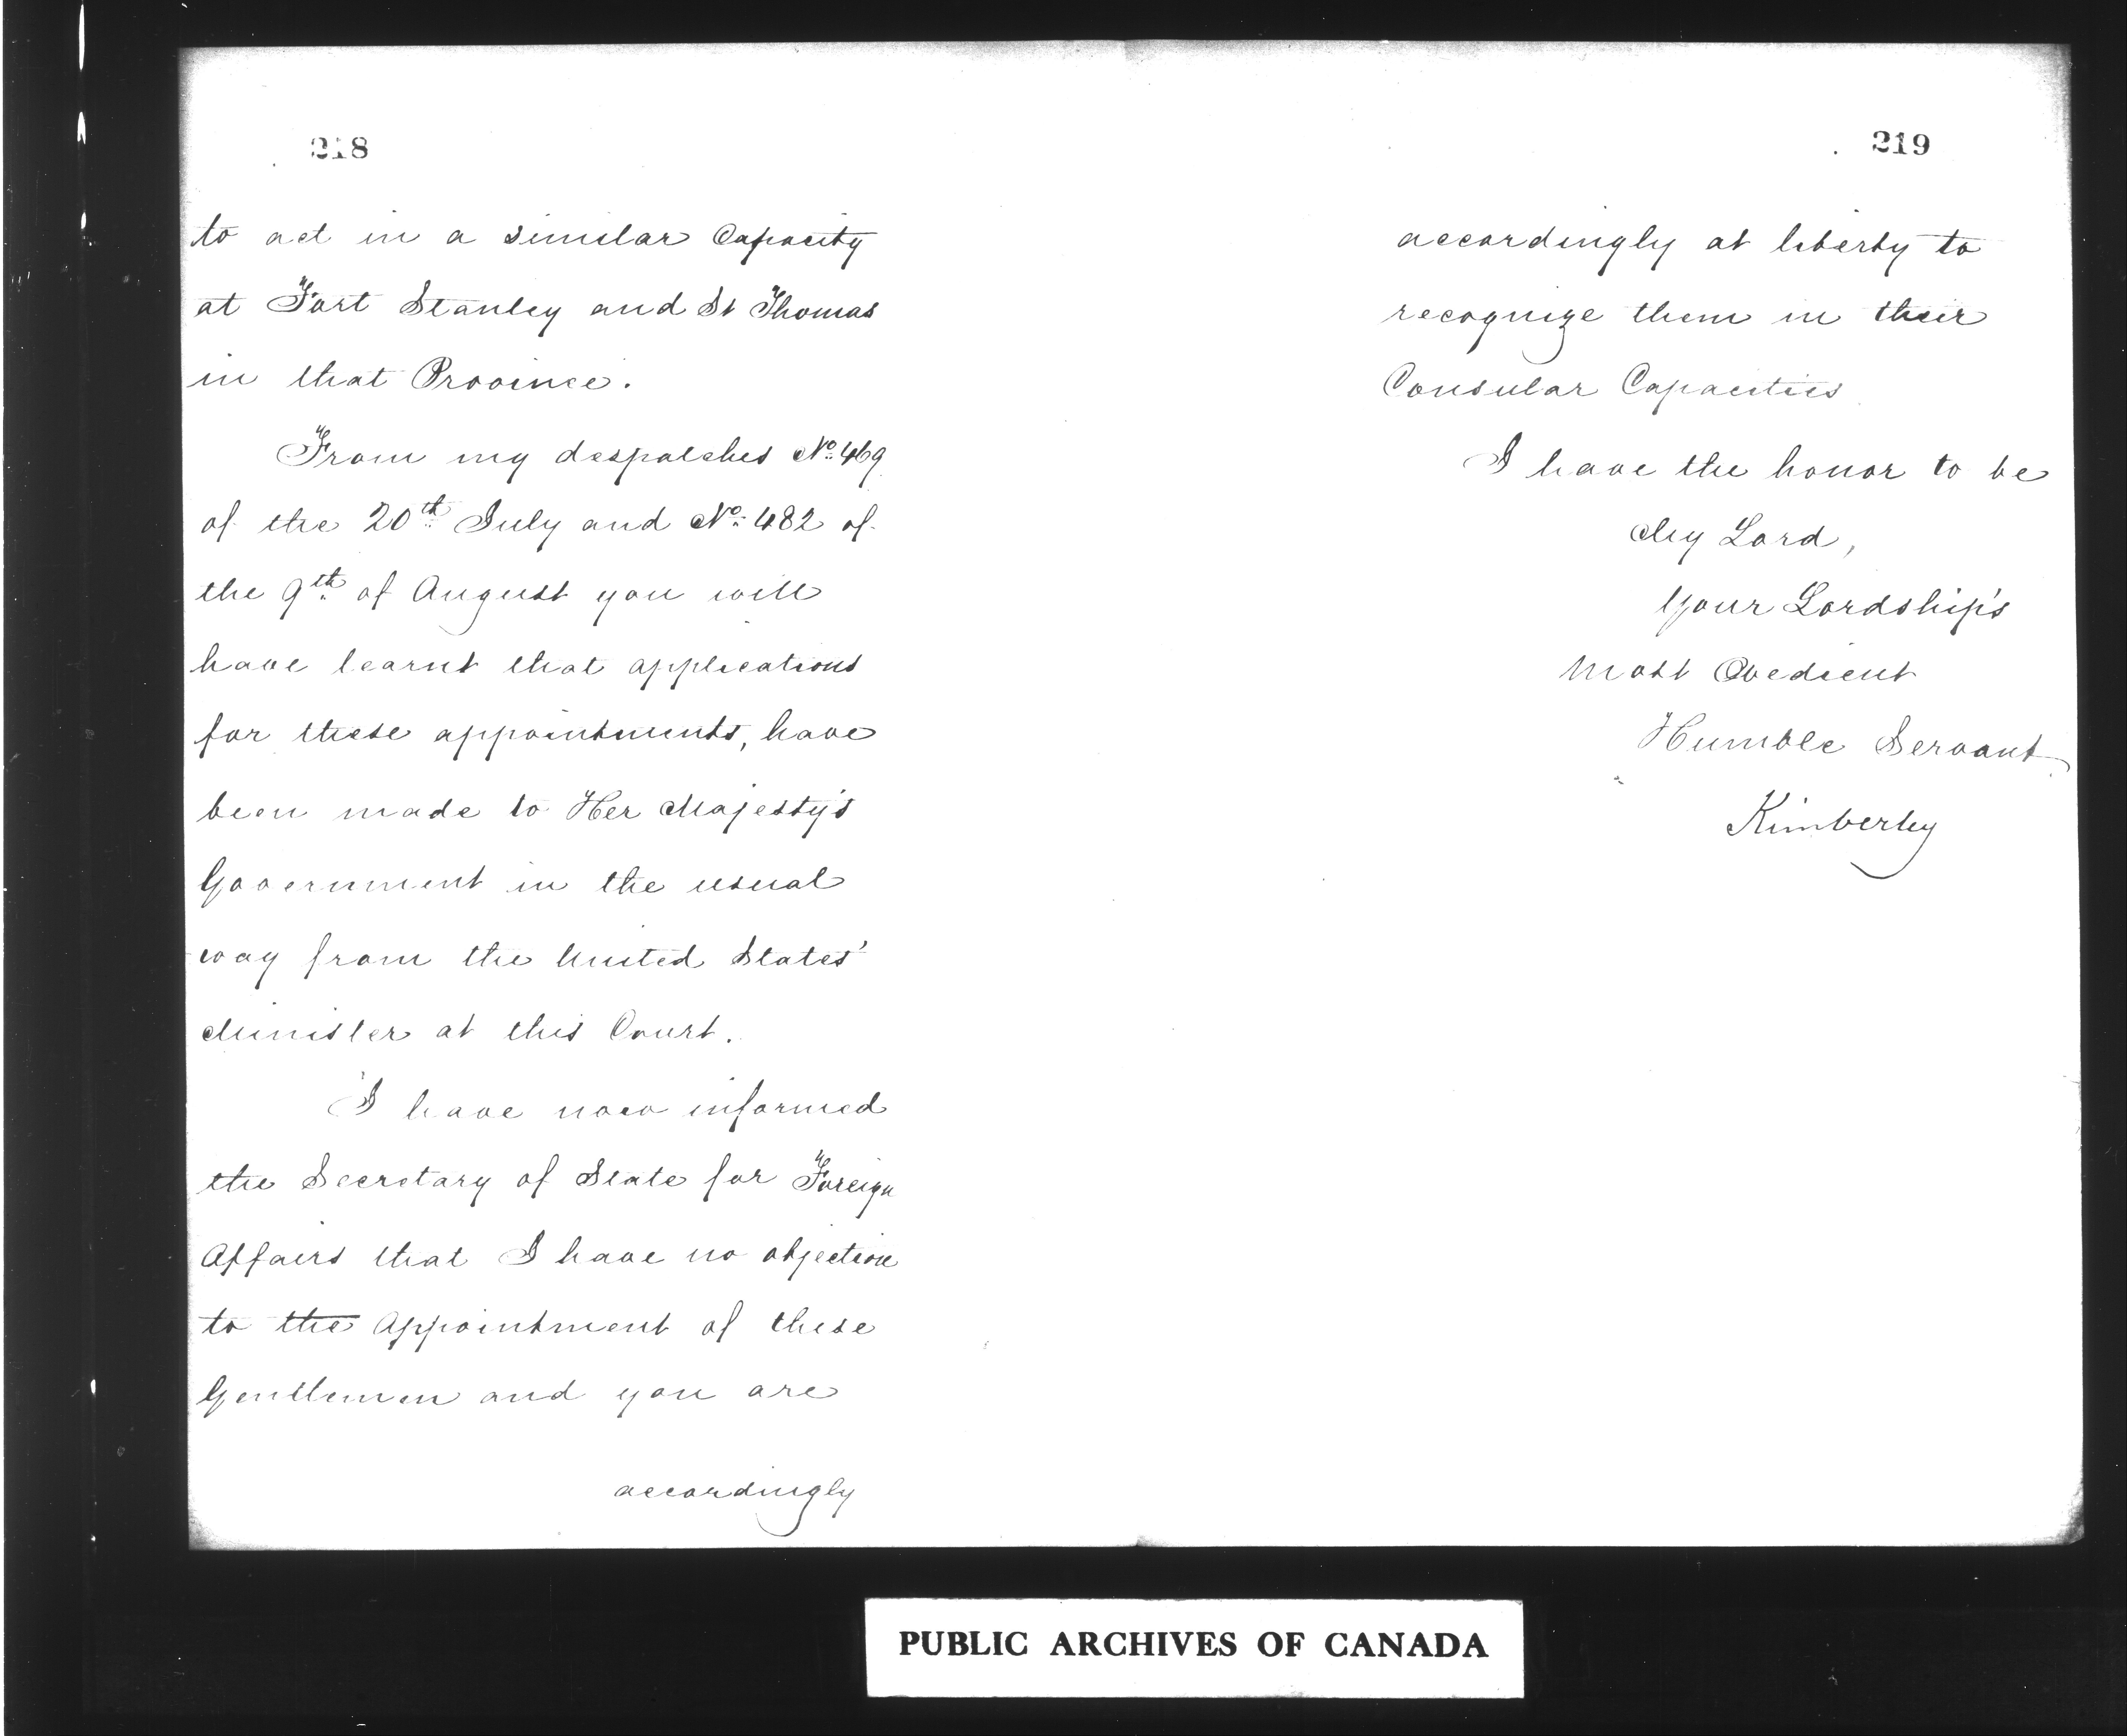 218
to act in a similar Capacity
at Fort Stanley and St Thomas
in that Province.
From my despatches No. 469
of the 20th July and No. 482 of
the 9th of August you will
have learnt that applications
for these appointments, have
been made to Her Majesty's
Government in the usual
way from the United States'
Minister at this Court.
I have now informed
the Secretary of State for Foreign
Affairs that I have no objection
to the Appointment of these
Gentlemen and you are
accordingly
219
accordingly at liberty to
recognize them in their
Consular Capacities
I have the honor to be
My Lord,
Your Lordship's
Most Obedient
Humble Servant
Kimberley
PUBLIC ARCHIVES OF CANADA